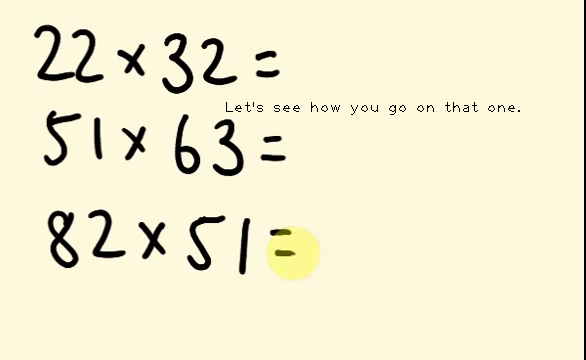 22×32=
Let's see how you go on that one.
51×63=
82×51=